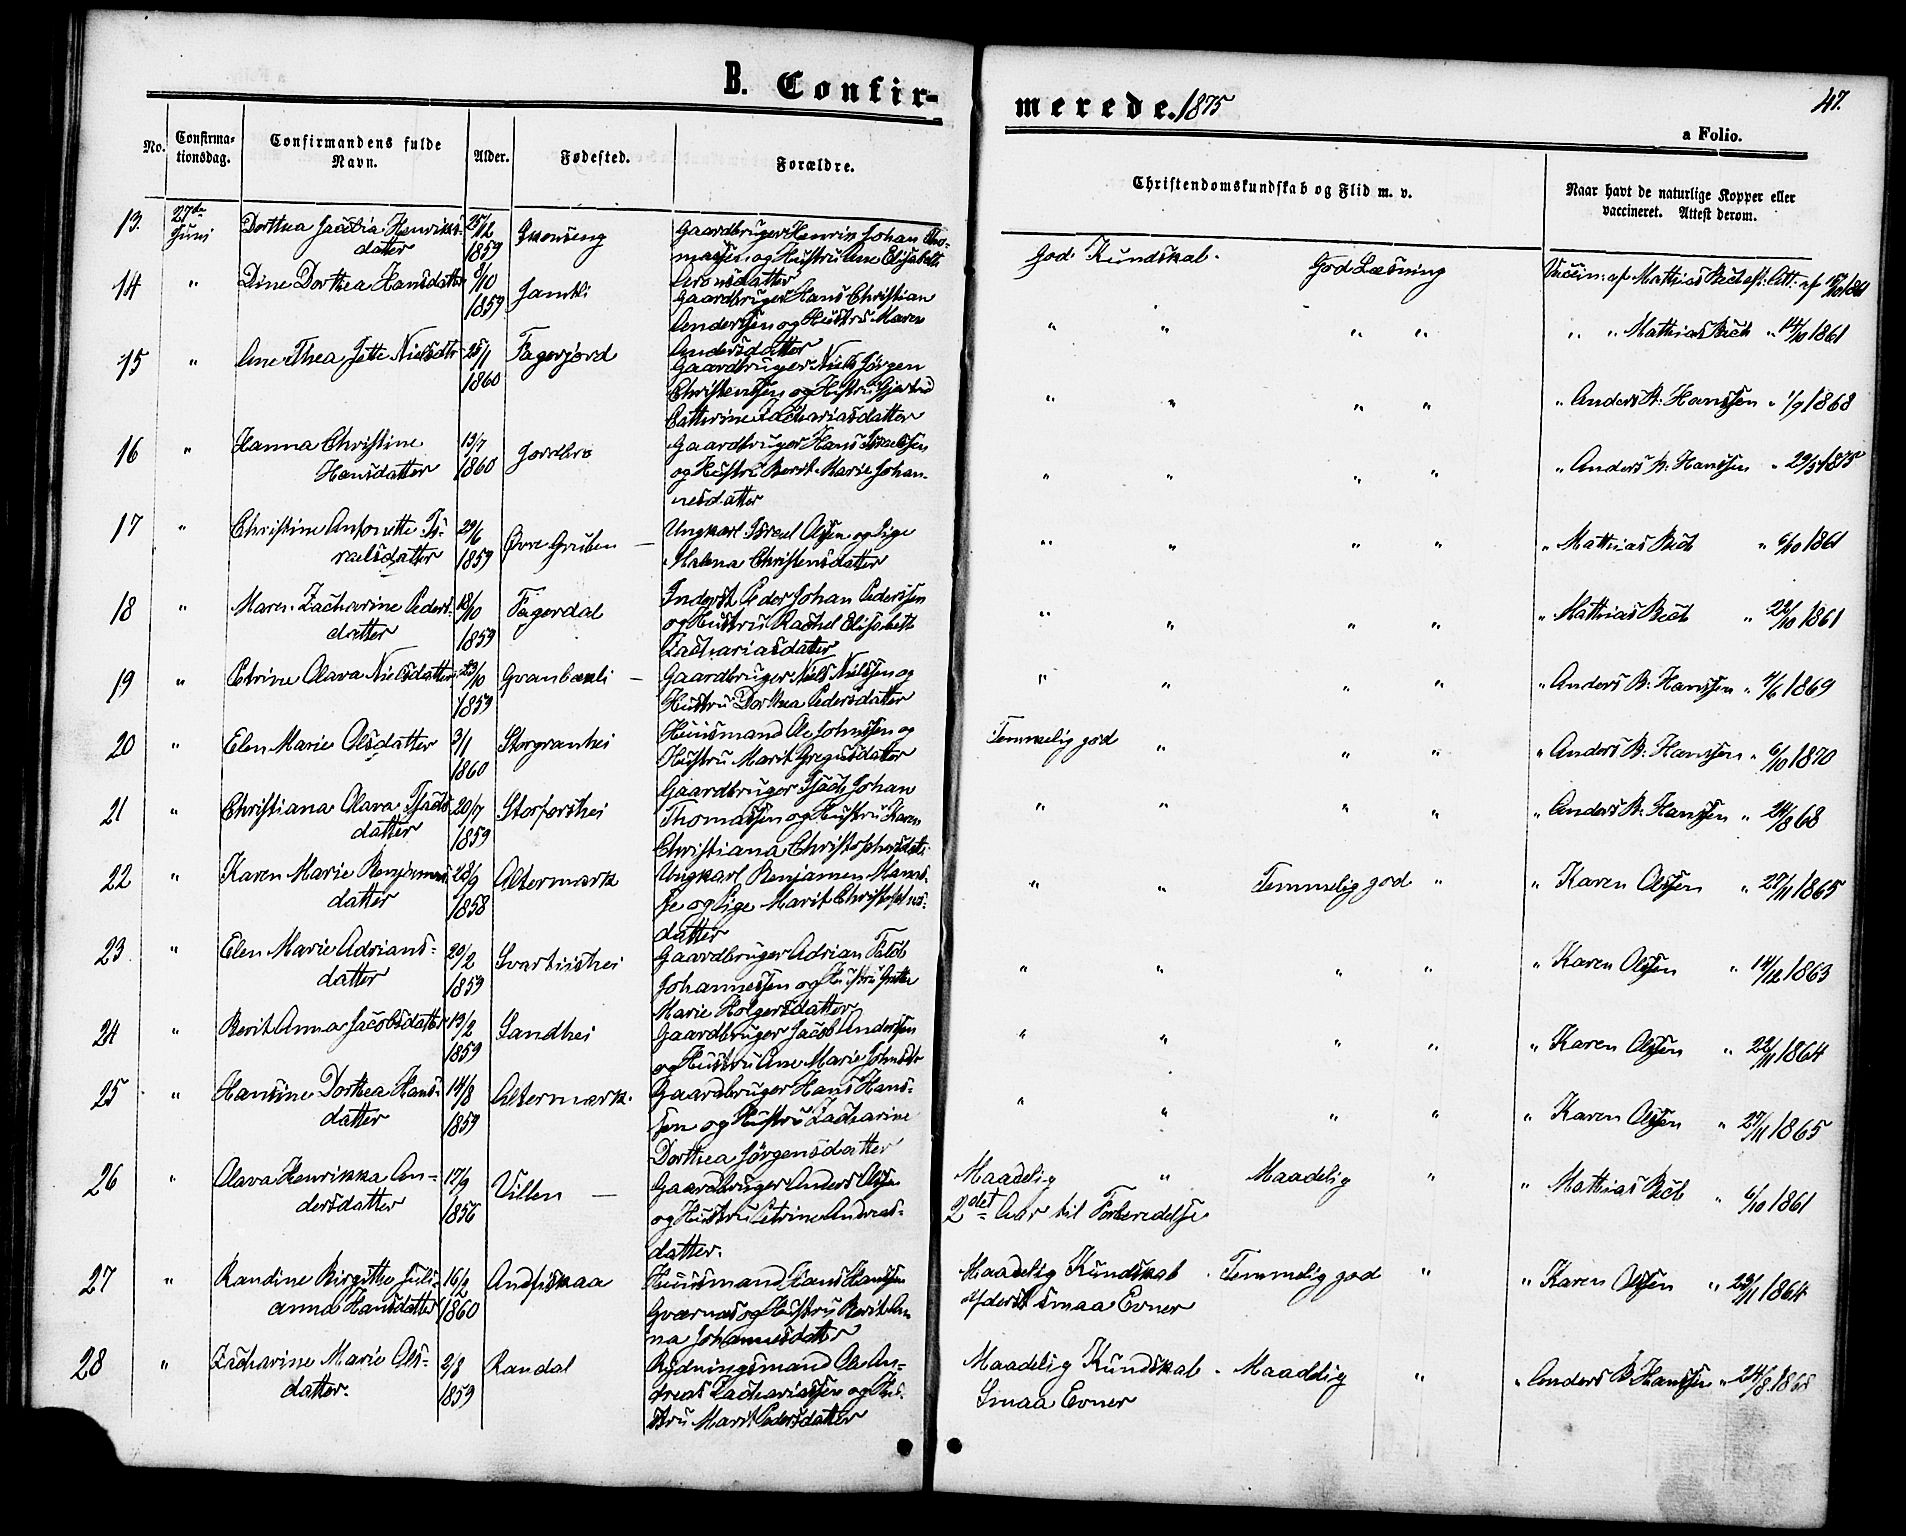 B. Confir-
merede. 1875
47.
a Folio.
No.
Confirma-
tionsdag.
Confirmandens fulde
Navn.
Alder.
Fødested.
Forældre.
Christendomskundskab og Flid m. v.
Naar havt de naturlige Kopper eller
vaccineret. Attest derom.
13. 27de Juni
Dorthea Jacobia Henriks-
datter
25/12 1859
Grønseng
Gaardbruger Henrik Johan Tho-
massen og Hustru Ane Elisabeth
Aronsdatter
God Kundskab.
God Læsning
Vaccin: af Mathias Bech
14 "
Dine Dorthea Hansdatter
9/10 1859
Jamtli
Gaardbruger Hans Christian
Anderssen og Hustru Maren
Andersdatter
" " " "
" " Mathias Bech " 14/10 1861
15 "
Ane Thea Jette Nielsdtr
25/1 1860
Fagerjord
Gaardbruger Niels Jörgen
Christenssen og Hustru Gjertrud
Cathrine Zachariasdatter
" " " "
" Anders B: Hanssen " 1/9 1868
16 "
Hanna Christine
Hansdatter
13/7 1860
Jordbro
Gaardbruger Hans Israelssen
og Hustru Berit Marie Johan-
nesdatter
" " " "
" Anders B: Hanssen " 29/5 1875
17 "
Christine Antonette Is-
raelsdatter
29/6 1859
Øvre Gruben —
Ungkarl Israel Olssen og Pige
Malena Christensdatter
" " " "
" Mathias Bech " 6/10 1861
18 "
Maren Zacharine Peders-
datter
18/10 1859
Fagerdal
Inderst Peder Johan Pederssen
og Hustru Rachel Elisabeth
Zachariasdatter
" " " "
" Mathias Bech " 22/10 1861
19 "
Petrine Olava Nielsdatter
23/10 1859
Granbækli —
Gaardbruger Niels Nielssen og
Hustru Dorthea Pedersdatter
" " " "
" Anders B: Hanssen " 4/6 1869
20 "
Elen Marie Olsdatter
3/1 1860
Storgranhei
Huusmand Ole Johnssen og
Hustru Marit Gregusdatter
Temmelig god " " "
" Anders B: Hanssen " 6/10 1870
21 "
Christiana Olava Isachs-
datter
20/7 1859
Storforshei
Gaardbruger Isach Johan
Thomassen og Hustru Karen
Christiana Christophersdatr
" " " "
" Anders B: Hanssen " 24/8 68
22 "
Karen Marie Benjamins-
datter
28/9 1858
Altermark
Ungkarl Benjamen Mons-
se og Pige Marit Christophers-
datter
" " Temmelig god "
" Karen Olssen " 27/11 1865
23 "
Elen Marie Adrians-
datter
20/2 1859
Svartisihei
Gaardbruger Adrian
Johannessen og Hustru Grethe
Marie Holgersdatter
" " " "
" Karen Olssen " 14/12 1863
24 "
Berit Anna Jacobsdatter
19/2 1859
Sandhei
Gaardbruger Jacob Anderssen
og Hustru Ane Marie Johnsdtr
" " " "
" Karen Olssen " 22/11 1864
25 "
Hansine Dorthea Hans-
datter
14/8 1859
Altermark.
Gaardbruger Hans Hans-
sen og Hustru Zacharine
Dorthea Jörgensdatter
" " " "
" Karen Olssen " 27/11 1865
26 "
Olava Henrikka An-
dersdatter
17/9 1856
Villen —
Gaardbruger Anders Olssen
og Hustru Petrine Andreas-
datter.
Maadelig " Maadelig "
2det Aar til Forberedelse
" Mathias Bech " 6/10 1861
27 "
Randine Birgitte Juli-
anna Hansdatter
16/2 1860
Andfiskaa
Huusmand Hans Hanssen
Gværnæs og Hustru Berit An-
na Johannesdatter
Maadelig Kundskab . Temmelig god "
yderst smaa Evner
" Karen Olssen " 29/11 1864
28 "
Zacharine Marie Ols-
datter.
2/8 1859
Randal
Rydningsmand Ole An-
dreas Zachariassen og Hu-
stru Marit Pedersdatter
Maadelig Kundskab . Maadelig "
Smaa Evner
" Anders B Hanssen " 24/8 1868